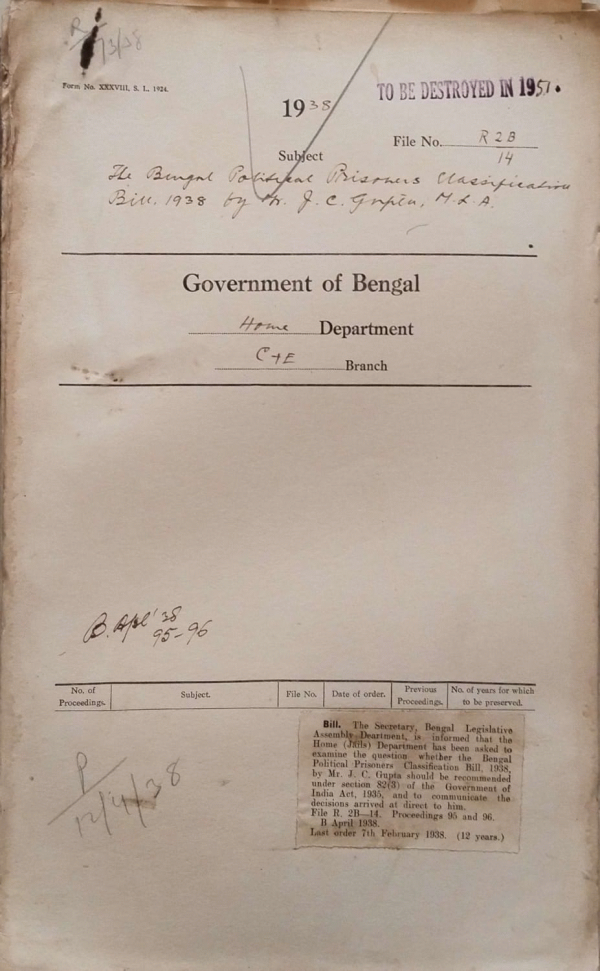 R
/73/38
Form No. XXXVIII, S. I., 1924.
TO BE DESTROYED IN 1951.
1938
File No. R 2B
14
Subject
The Bengal Political Prisoners Classification
Bill, 1938 by Mr. J. C. Gupta, M.L.A.
Government of Bengal
Home Department
C+E Branch
B. Apl '38
95-96
No. of Proceedings. Subject. File No. Date of order. Previous Proceedings. No. of years for which to be preserved.
Bill. The Secretary, Bengal Legislative
Assembly Deartment, is informed that the
Home (Jails) Department has been asked to
examine the question whether the Bengal
Political Prisoners Classification Bill, 1938,
by Mr. J. C. Gupta should be recommended
under section 82(3) of the Government of
India Act, 1935, and to communicate the
decisions arrived at direct to him.
File R. 2B—14. Proceedings 95 and 96.
B April 1938.
Last order 7th February 1938. (12 years.)
P
12/4/38